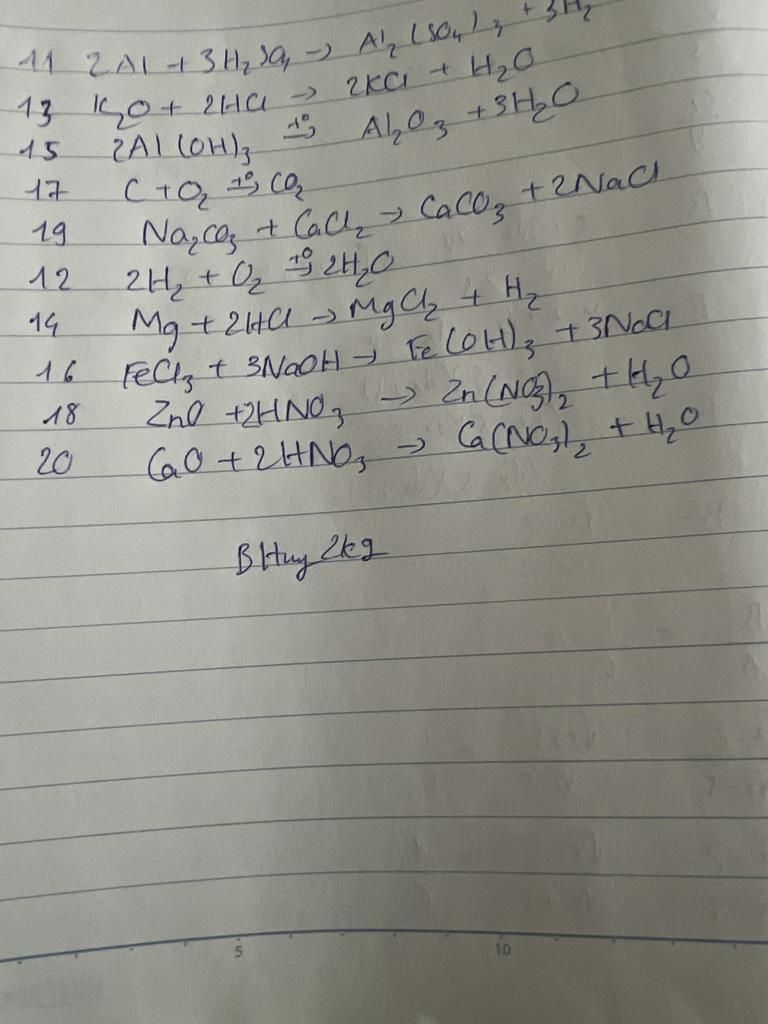 11 2Al + 3H₂SO₄ → Al₂(SO₄)₃ + 3H₂
13 K₂O + 2HCl → 2KCl + H₂O
15 2Al(OH)₃ t⁰→ Al₂O₃ + 3H₂O
17 C + O₂ t⁰→ CO₂
19 Na₂CO₃ + CaCl₂ → CaCO₃ + 2NaCl
12 2H₂ + O₂ t⁰→ 2H₂O
14 Mg + 2HCl → MgCl₂ + H₂
16 FeCl₃ + 3NaOH → Fe(OH)₃ + 3NaCl
18 ZnO + 2HNO₃ → Zn(NO₃)₂ + H₂O
20 CaO + 2HNO₃ → Ca(NO₃)₂ + H₂O
BHuy 2kg
5 10